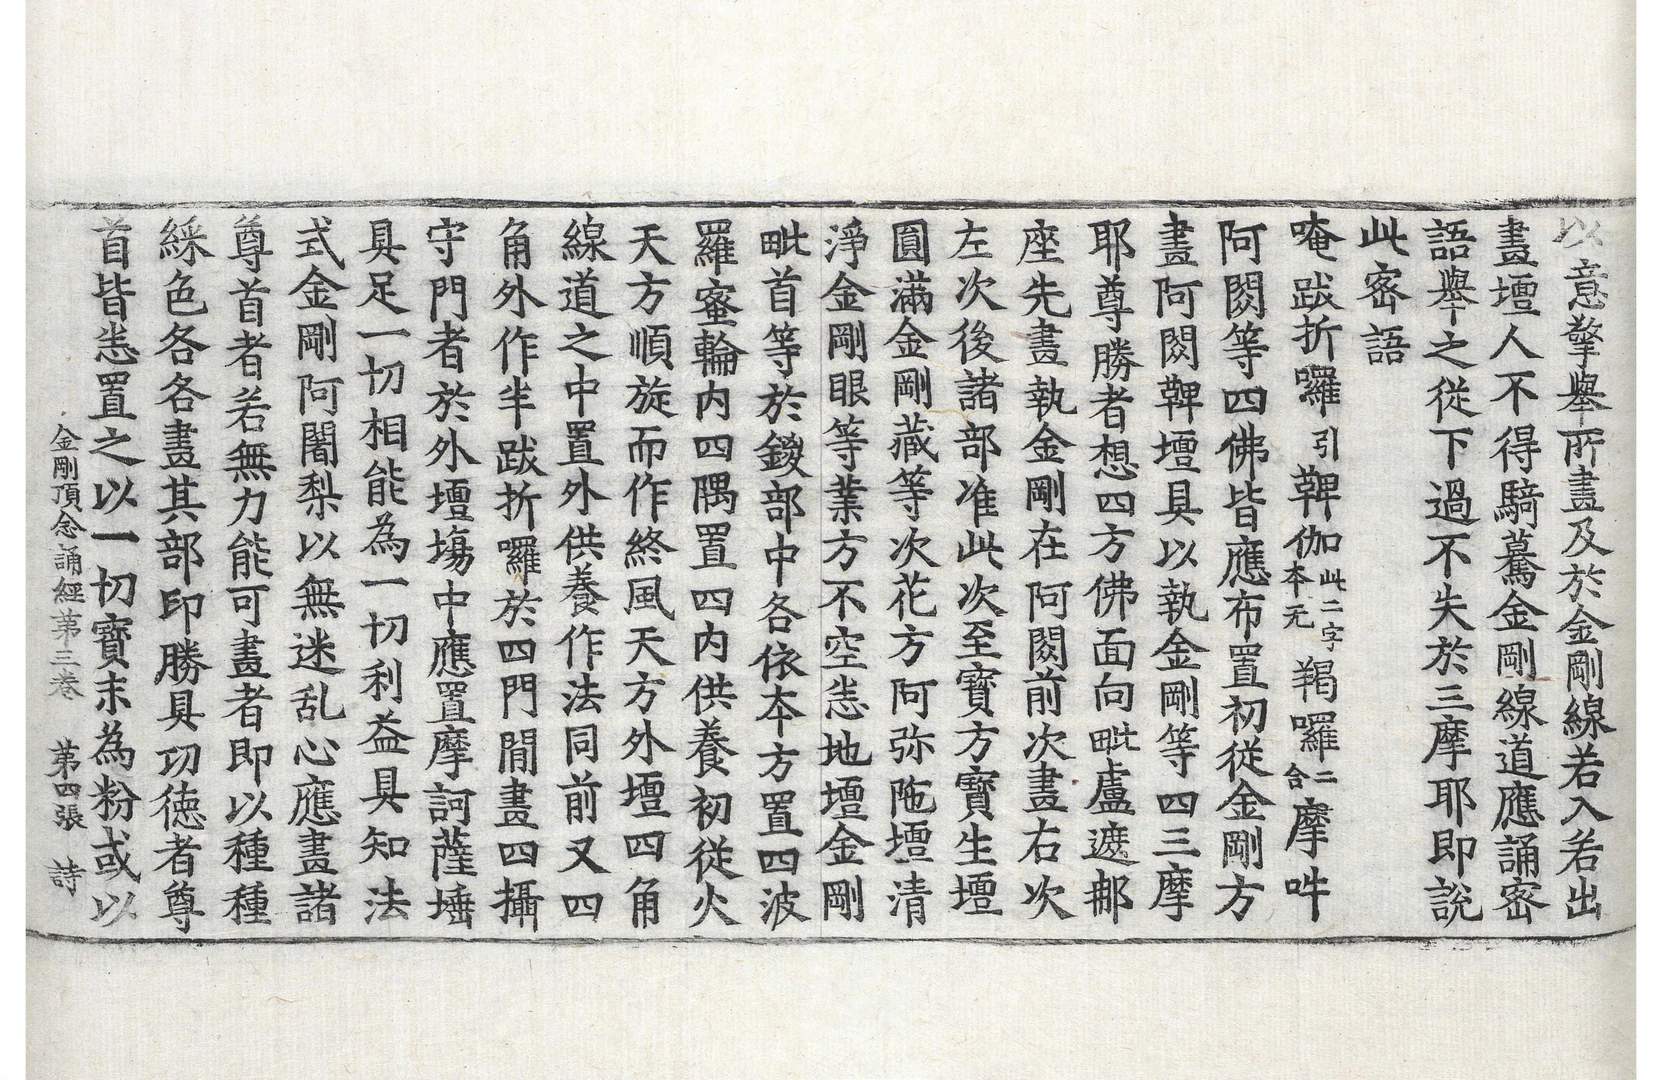 以意擎舉所畫及於金剛線若入若出
畫壇人不得騎驀金剛線道應誦密
語舉之從下過不失於三摩耶即說
此密語
唵跋折囉引鞞伽此二字本无羯囉二合摩吽
阿閦等四佛皆應布置初從金剛方
畫阿閦鞞壇具以執金剛等四三摩
耶尊勝者想四方佛面向毗盧遮那
座先畫執金剛在阿閦前次畫右次
左次後諸部准此次至寶方寶生壇
圓滿金剛藏等次花方阿弥陁壇清
淨金剛眼等業方不空悉地壇金剛
毗首等於鍐部中各依本方置四波
羅蜜輪内四隅置四内供養初從火
天方順旋而作終風天方外壇四角
線道之中置外供養作法同前又四
角外作半跋折囉於四門閒畫四攝
守門者於外壇場中應置摩訶薩埵
具足一切相能為一切利益具知法
式金剛阿闍梨以無迷乱心應畫諸
尊首者若無力能可畫者即以種種
綵色各各畫其部印勝具㓛徳者尊
首皆悉置之以一切寶末為粉或以
金剛頂念誦經第三卷 第四張 詩